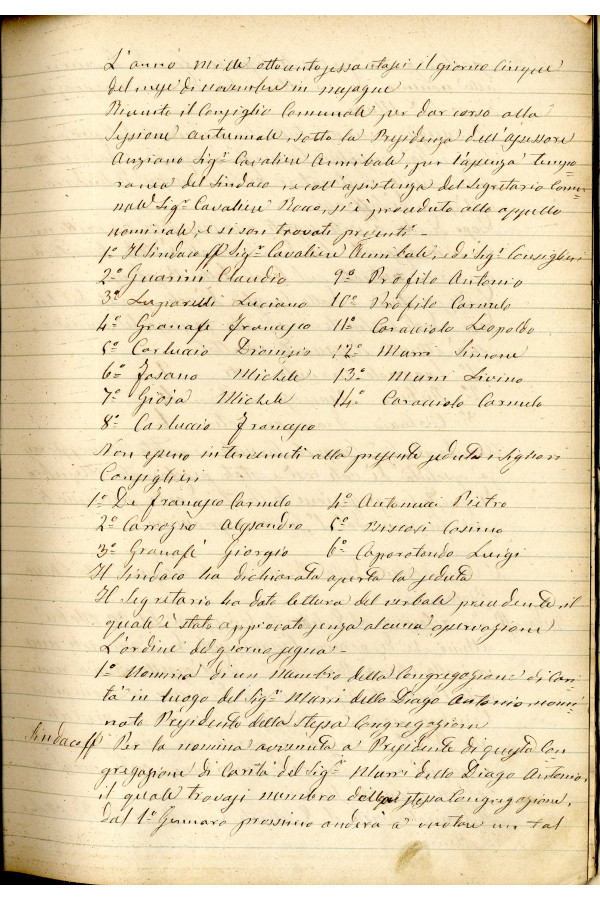 L'anno mille ottocento sessantasei il giorno cinque
del mese di novembre in
Riunito il Consiglio Comunale per dar corso alla
Sessione autunnale, sotto la Presidenza dell'Assessore
Anziano Sigr Cavaliere Annibale, per l'assenza tempo=
ranea del Sindaco, e coll'assistenza del Segretario Comu=
nale Sigr Cavaliere Rocco, si è proceduto allo appello
nominale, e si son trovati presenti -
1º Il Sindaco ff Sigr Cavaliere Annibale, ed i Sigri Consiglieri
2º Guarini Claudio 9º Profilo Antonio
3º Luparelli Luciano 10º Profilo Carmelo
4º Granafei Francesco 11º Caracciolo Leopoldo
5º Carluccio Dionisio 12º Marri Simone
6º Fasano Michele 13º Murri Livino
7º Gioja Michele 14º Caracciolo Carmelo
8º Carluccio Francesco
Non essono intervenuti alla presente seduta i Signori
Consiglieri
1º De Francesco Carmelo 4º Antonucci Pietro
2º Carrozzo Alessandro 5º Biscosi Cosimo
3º Granafei Giorgio 6º Caporotondo Luigi
Il Sindaco ha dichiarata aperta la seduta
Il Segretario ha dato lettura del verbale precedente, il
quale è stato approvato senza alcuna osservazione
L'ordine del giorno segna -
1º Nomina di un membro della Congregazione di Cari=
tà in luogo del Sigr Marri dello Diago Antonio nomi=
nato Presidente della stessa Congregazione
Sindaco ff Per la nomina avvenuta a Presidente di questa Con
gregazione di Carità del Sigr Marri dello Diago Antonio,
il quale trovasi membro della stessa Congregazione,
dal 1º Gennaro prossimo anderà a vuotare un tal